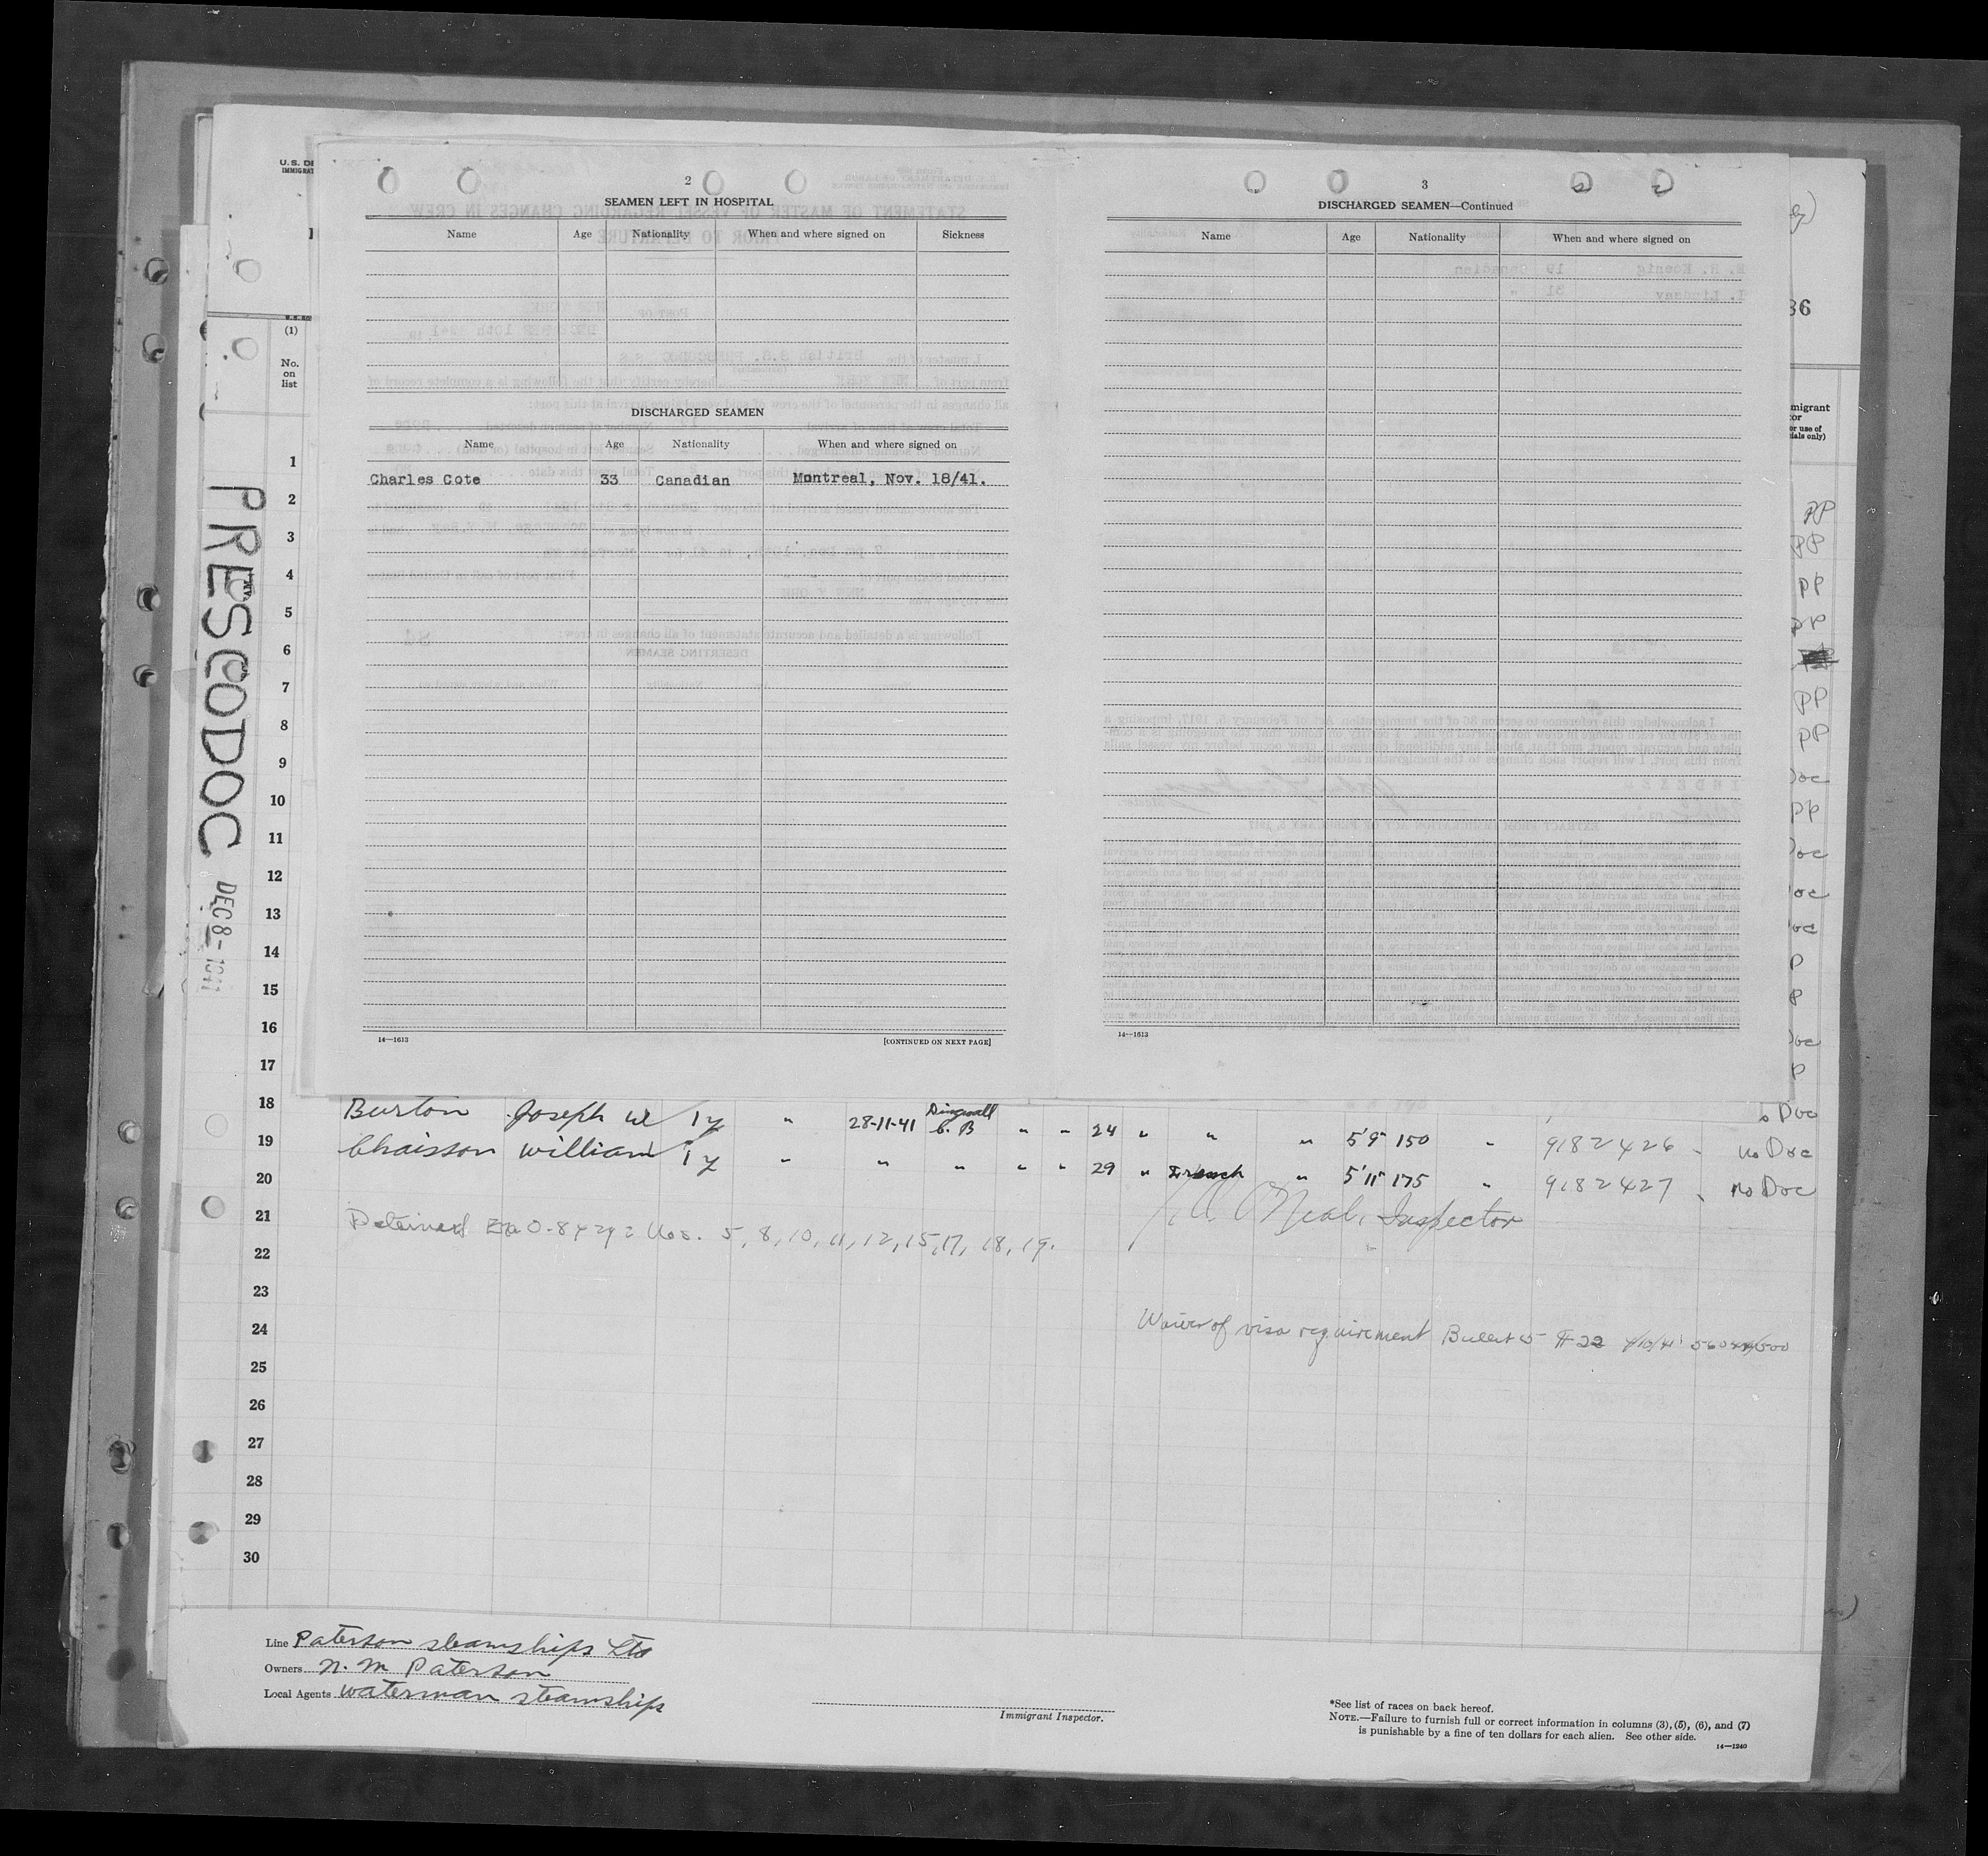 U.S. DE
IMMIGRAT
2
SEAMEN LEFT IN HOSPITAL
Name Age Nationality When and where signed on Sickness
DISCHARGED SEAMEN
Name Age Nationality When and where signed on
Charles Cote 33 Canadian Montreal, Nov. 18/41.
14—1613 [CONTINUED ON NEXT PAGE]
3
DISCHARGED SEAMEN—Continued
Name Age Nationality When and where signed on
14—1613
PRESCODOC DEC 8-1941
(1)
No.
on
list
1
2
3
4
5
6
7
8
9
10
11
12
13
14
15
16
17
18
19
20
21
22
23
24
25
26
27
28
29
30
36
migrant
or
or use of
ials only)
PP
PP
PP
PP
PP
PP
Doc
PP
Doc
oc
oc
P
P
Doc
P
o Doc
Burton Joseph W 1y " 28-11-41 Dingwall C. B " " 24 " " " 5'9" 150 " 9182426 - no Doc
Chaisson William 1y " " " " " 29 " French " 5'11" 175 " 9182427 - no Doc
O'Neal, Inspector
Detained 5, 8, 10, 11, 12, 15, 17, 18, 19.
Waiver of visa requirement #22
Line Paterson Steamships Ltd
Owners N. M Paterson
Local Agents Waterman Steamships
Immigrant Inspector.
*See list of races on back hereof.
NOTE.—Failure to furnish full or correct information in columns (3), (5), (6), and (7)
is punishable by a fine of ten dollars for each alien. See other side.
14—1240